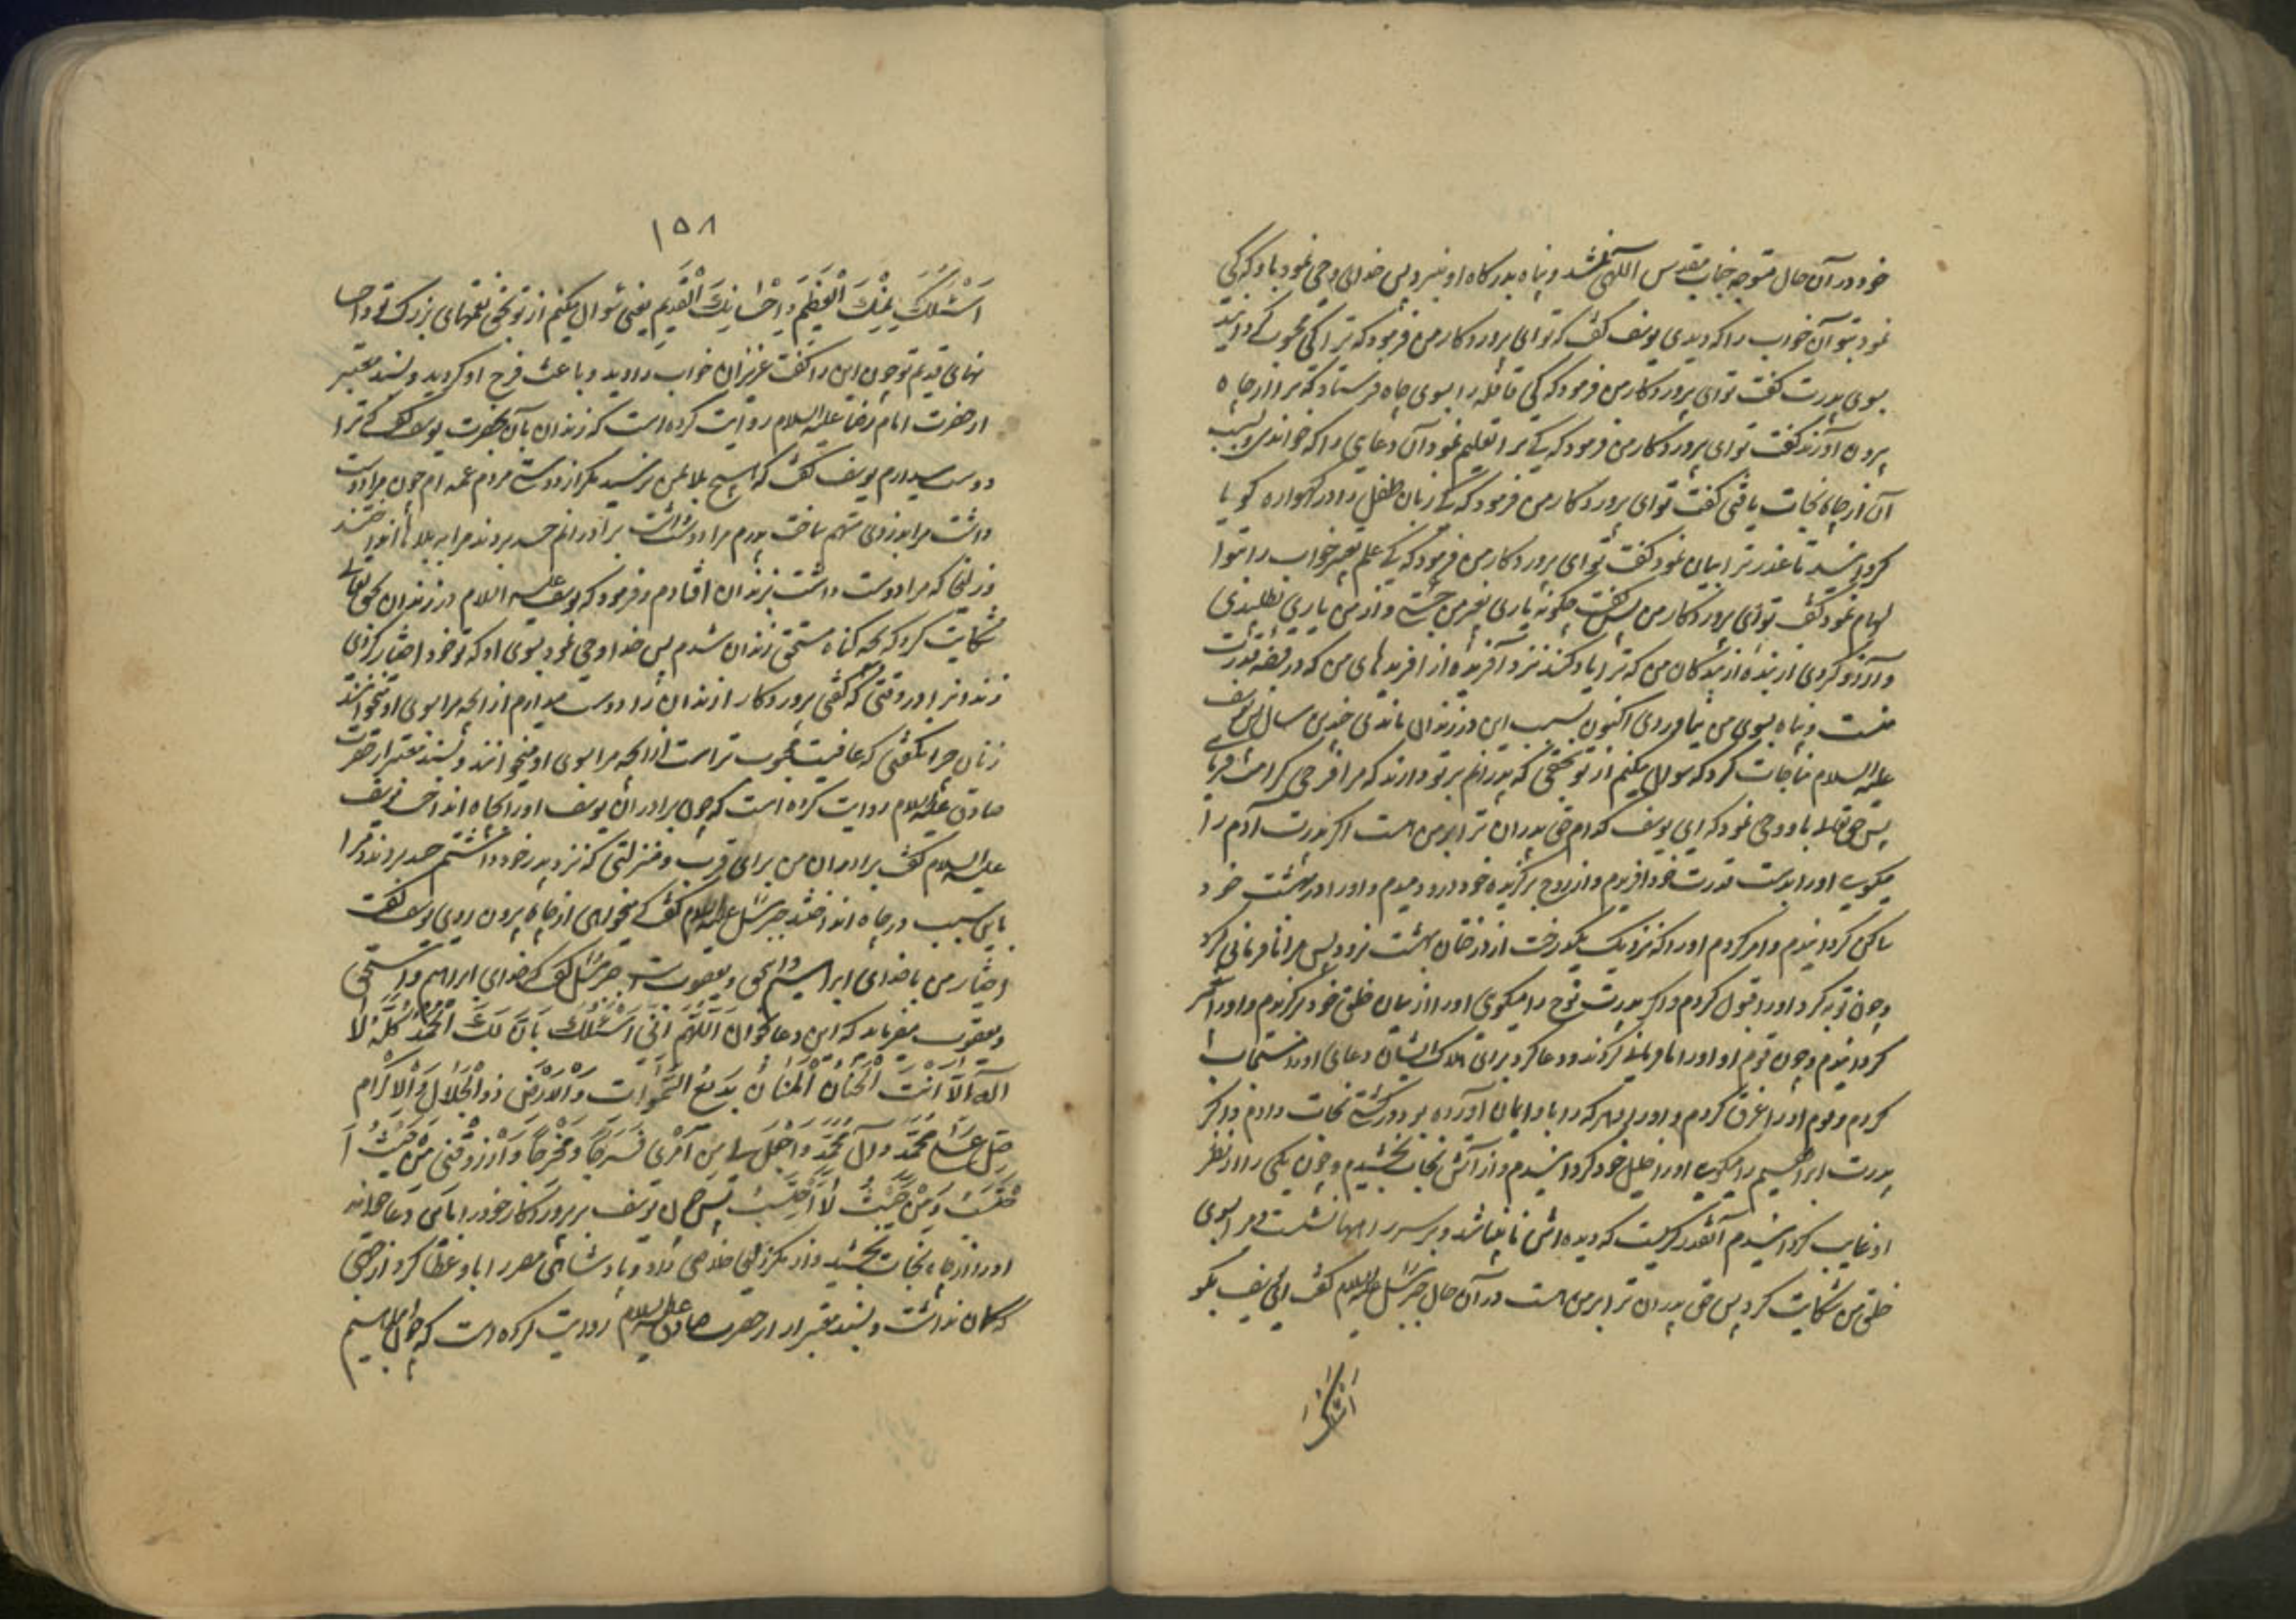 خود در آن حال متوجه جناب مقدس الهی نشد و پناه بدرگاه او نبرد پس خدا وحی نمود باو که کی
نمود بتو آن خواب را که دیدی یوسف گفت که تو ای پروردگار من فرمود که ترا کی محبوب گردانید
بسوی پدرت گفت تو ای پروردگار من فرمود که کی قافله را بسوی چاه فرستاد که ترا از چاه
بیرون آورند گفت تو ای پروردگار من فرمود که کی ترا تعلیم نمود آن دعایی را که خواندی و بسبب
آن از چاه نجات یافتی گفت تو ای پروردگار من فرمود که کی زبان طفل را در گهواره گویا
گردانید تا عذر ترا بیان نمود گفت تو ای پروردگار من فرمود که کی علم تعبیر خواب را بتو ا
لهام نمود گفت تو ای پروردگار من پس گفت چگونه یاری بغیر من جستی و از من یاری نطلبیدی
و آرزو کردی از بنده از بندگان من که ترا یاد کند نزد آفریده از آفریده های من که در قبضه قدرت
منست و پناه بسوی من نیاوردی اکنون بسبب این در زندان بمان چندین سال پس یوسف
علیه السلام مناجات کرد که سوال میکنم از تو بحقی که پدرانم بر تو دارند که مرا فرجی کرامت فرمای
پس حق تعالی باو وحی نمود که ای یوسف کدام حق پدران ترا بر من است اگر پدرت آدم را
میگویی او را بدست قدرت خود آفریدم و از روح برگزیده خود در او دمیدم و او را در بهشت خود
ساکن گردانیدم و امر کردم او را که نزدیک یکدرخت از درختان بهشت نرود پس مرا نافرمانی کرد
و چون توبه کرد او را قبول کردم و اگر پدرت نوح را میگویی او را از میان خلق خود برگزیدم و او را پیغمبر
گردانیدم و چون قوم او او را نافرمانی کردند و دعا کرد برای هلاک ایشان دعای او را مستجاب
کردم و قوم او را غرق کردم و او را و هر که را باو ایمان آورده بود در کشتی نجات دادم و اگر
پدرت ابراهیم را میگویی او را خلیل خود گردانیدم و از آتش نجات بخشیدم و چون یکی را از نظر
او غایب گردانیدم آنقدر گریست که دیده اش نابینا شد و بر سر راهها نشست و مرا بسوی
خلق من شکایت کرد پس حق پدران ترا بر من است در آن حال جبرئیل علیه السلام گفت ای یوسف بگو
اسئلک
۱۵۸
اَسْئَلُکَ بِمَنِّکَ الْعَظیمِ وَ اِحْسانِکَ الْقَدیمِ یعنی سوال میکنم از تو بحق نعمتهای بزرگ تو و احسا
نهای قدیم تو چون این را گفت عزیز آن خواب را دید و باعث فرج او گردید و بسند معتبر
از حضرت امام رضا علیه السلام روایت کرده است که زندان بان بحضرت یوسف گفت که ترا
دوست میدارم یوسف گفت که هیچ بلا بمن نرسید مگر از دوستی مردم عمه ام چون مرا دوست
داشت مرا بدزدی متهم ساخت پدرم مرا دوست داشت برادرانم حسد بردند مرا به بلاها انداختند
و زلیخا که مرا دوست داشت بزندان افتادم و فرمود که یوسف علیه السلام در زندان بحق تعالی
شکایت کرد که بچه گناه مستحق زندان شدم پس خدا وحی نمود بسوی او که تو خود اختیار کردی
زندانرا در وقتی که گفتی پروردگارا زندان را دوست میدارم از آنچه مرا بسوی او میخوانند
زنان چرا نگفتی که عافیت محبوب تر است از آنچه مرا بسوی او میخوانند و بسند معتبر از حضرت
صادق علیه السلام روایت کرده است که چون برادران یوسف او را بچاه انداختند یوسف
علیه السلام گفت برادران من برای قرب و منزلتی که نزد پدر خود داشتم حسد بردند و مرا
باین سبب در چاه انداختند جبرئیل علیه السلام گفت که میخواهی از چاه بیرون روی یوسف گفت
اختیار من با خدای ابراهیم و اسحق و یعقوبست جبرئیل گفت که خدای ابراهیم و اسحق
و یعقوب میفرماید که این دعا بخوان اَللّهُمَّ اِنّی اَسْئَلُکَ بِاَنَّ لَکَ الْحَمْدُ کُلُّهُ لا
اِلهَ اِلّا اَنْتَ الْحَنّانُ الْمَنّانُ بَدیعُ السَّمواتِ وَ الْاَرْضِ ذُو الْجَلالِ وَ الْاِکْرامِ
صَلِّ عَلی مُحَمَّدٍ وَ آلِ مُحَمَّدٍ وَ اجْعَلْ لی مِنْ اَمْری فَرَجاً وَ مَخْرَجاً وَ ارْزُقْنی مِنْ حَیْثُ اَ
حْتَسِبُ وَ مِنْ حَیْثُ لا اَحْتَسِبُ پس چون یوسف پروردگار خود را باین دعا خواند
او را از چاه نجات بخشید و از مکر زلیخا خلاصی داد و پادشاهی مصر را باو عطا کرد از جهتی
که گمان نداشت و بسند معتبر از حضرت صادق علیه السلام روایت کرده است که چون ابراهیم